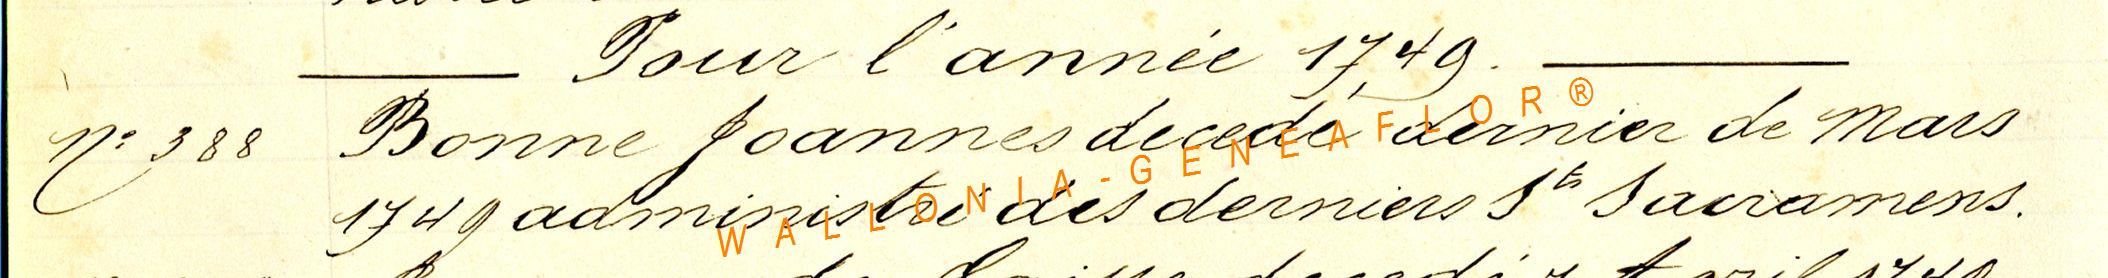 Pour l'année 1749.
N° 388 Bonne Joannes decedé dernier de Mars
1749 administré des derniers Sts Sacramens.
decedé 7 Avril 1749
WALLONIA-GENEAFLOR®